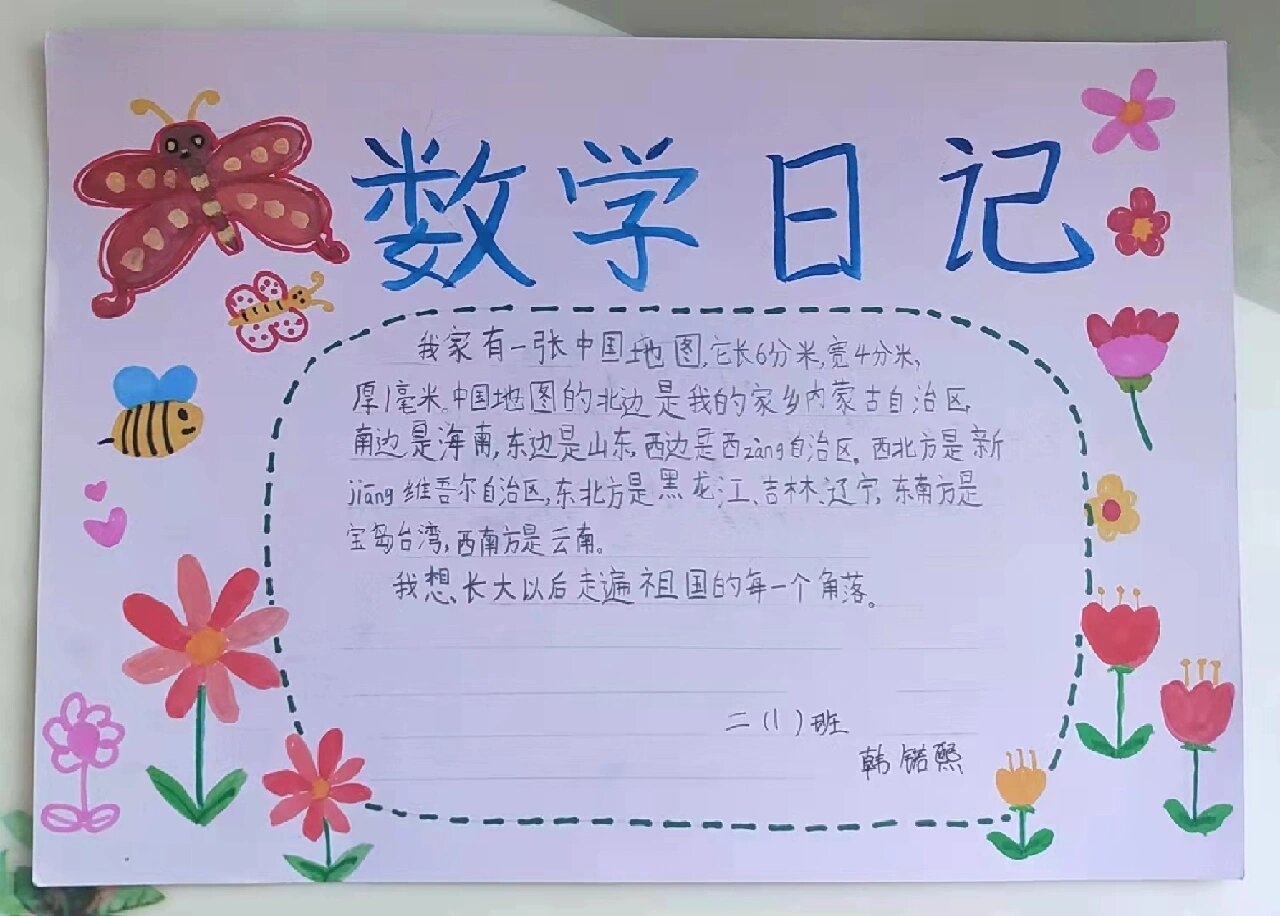 数学日记
我家有一张中国地图,它长6分米,宽4分米,
厚1毫米.中国地图的北边是我的家乡内蒙古自治区,
南边是海南,东边是山东,西边是西zàng自治区。西北方是新
jiāng维吾尔自治区,东北方是黑龙江、吉林、辽宁,东南方是
宝岛台湾,西南方是云南。
我想,长大以后走遍祖国的每一个角落。
二(1)班
韩锘熙